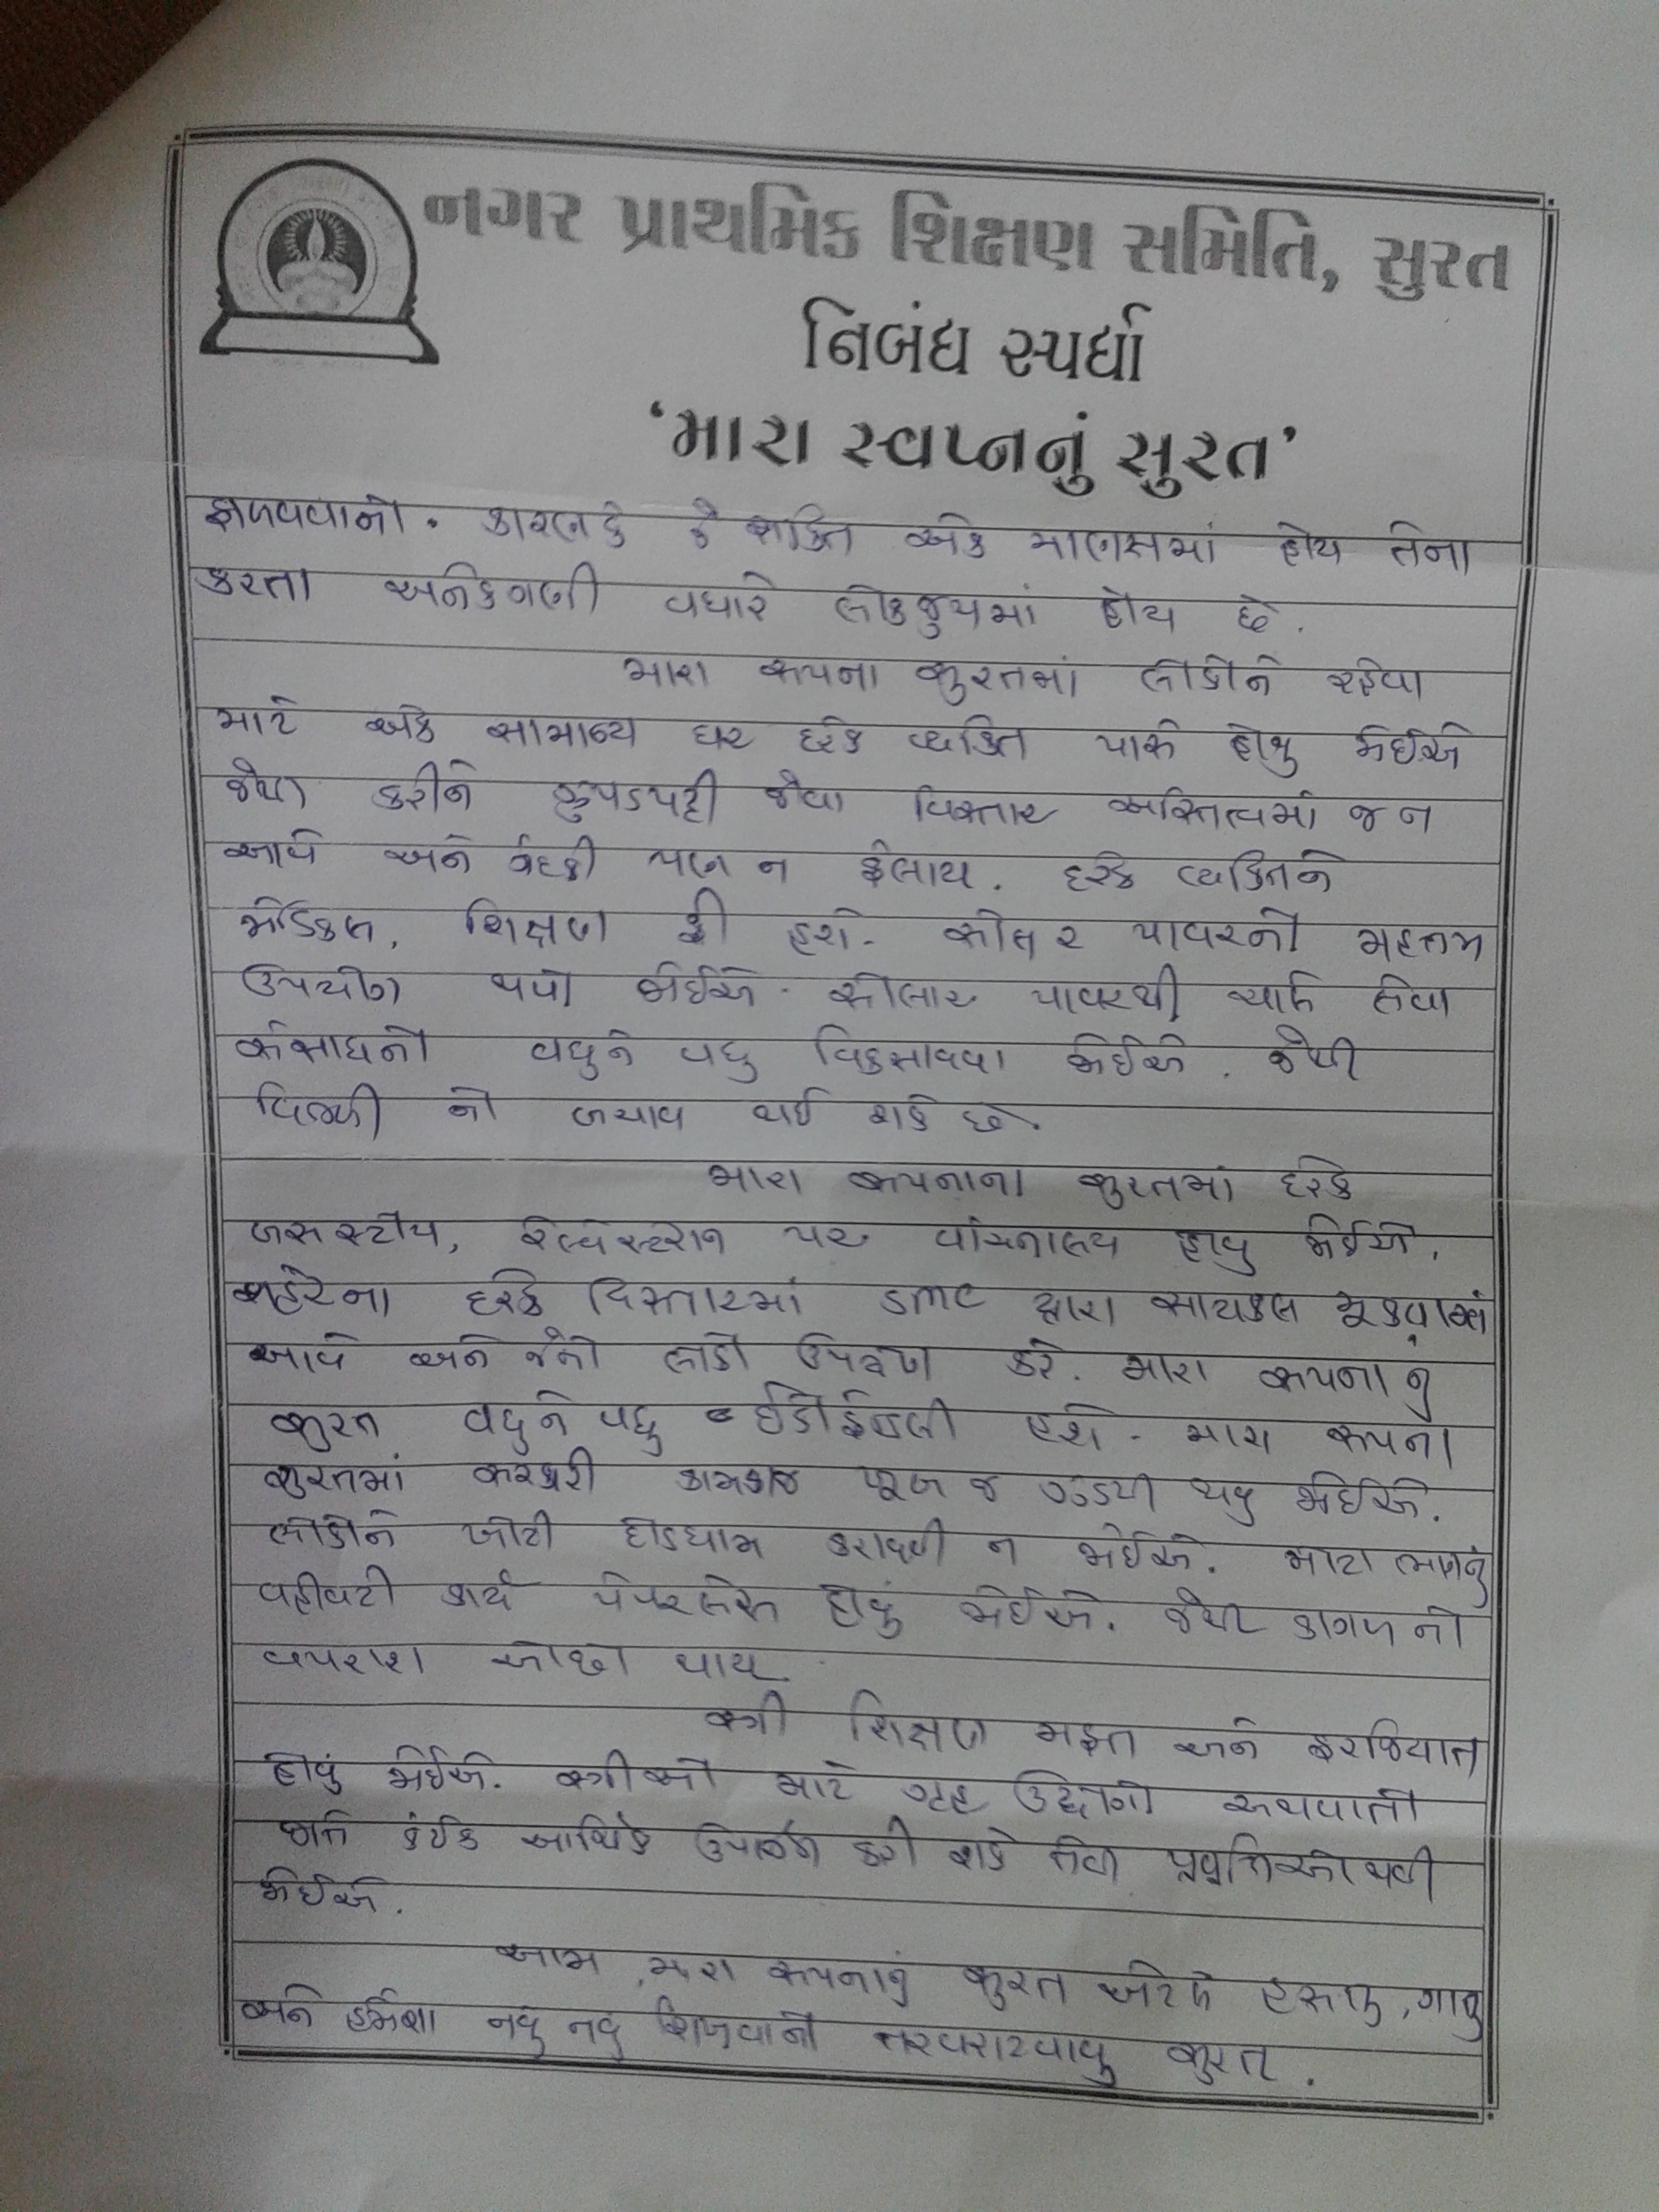 નગર પ્રાથમિક શિક્ષણ સમિતિ, સુરત
નિબંધ સ્પર્ધા
‘મારા સ્વપ્નનું સુરત’
કારણકે જે શક્તિ એક માણસમાં હોય તેના
કરતા અનેકગણી વધારે લોકજુથમાં હોય છે.
મારા સપના સુરતમાં લોકોને રહેવા
માટે એક સામાન્ય ઘર દરેક વ્યક્તિ પાસે હોવુ જોઈએ
જેથી કરીને ઝુપડપટ્ટી જેવા વિસ્તાર અસ્તિત્વમાં જ ન
આવે અને ગંદકી પણ ન ફેલાય. દરેક વ્યક્તિને
મેડિકલ, શિક્ષણ ફ્રી હશે. સોલર પાવરનો મહત્તમ
ઉપયોગ થવો જોઈએ. સોલાર પાવરથી ચાલે તેવા
સંસાધનો વધુને વધુ વિકસાવવા જોઈએ. જેથી
વિજળી નો બચાવ થઈ શકે છે.
મારા સપનાના સુરતમાં દરેક
બસસ્ટોપ, રેલ્વેસ્ટેશન પર વાંચનાલય હોવુ જોઈએ.
શહેરના દરેક વિસ્તારમાં SMC દ્વારા સાયકલ મૂકવામાં
આવે અને જેનો લોકો ઉપયોગ કરે. મારા સપના નુ
સુરત વધુને વધુ ઈકોફ્રેન્ડલી હશે. મારા સપના
સુરતમાં સરકારી કામકાજ ખૂબ જ ઝડપી થવુ જોઈએ.
લોકોને ખોટી દોડધામ કરાવવી ન જોઈએ. મોટા ભાગનું
વહીવટી કાર્ય પેપરલેસ હોવું જોઈએ. જેથી કાગળ નો
વપરાશ ઓછો થાય.
સ્ત્રી શિક્ષણ મફત અને ફરજિયાત
હોવું જોઈએ. સ્ત્રીઓ માટે ગૃહ ઉદ્યોગો અથવા તો
જાતે કંઈક આર્થિક ઉપાર્જન કરી શકે તેવી પ્રવૃત્તિઓ થવી
જોઈએ.
આમ, મારા સપનાનું સુરત એટલે હસતુ, ગાતુ
અને હંમેશા નવુ નવુ શિખવાની તરવરાટવાળુ સુરત.